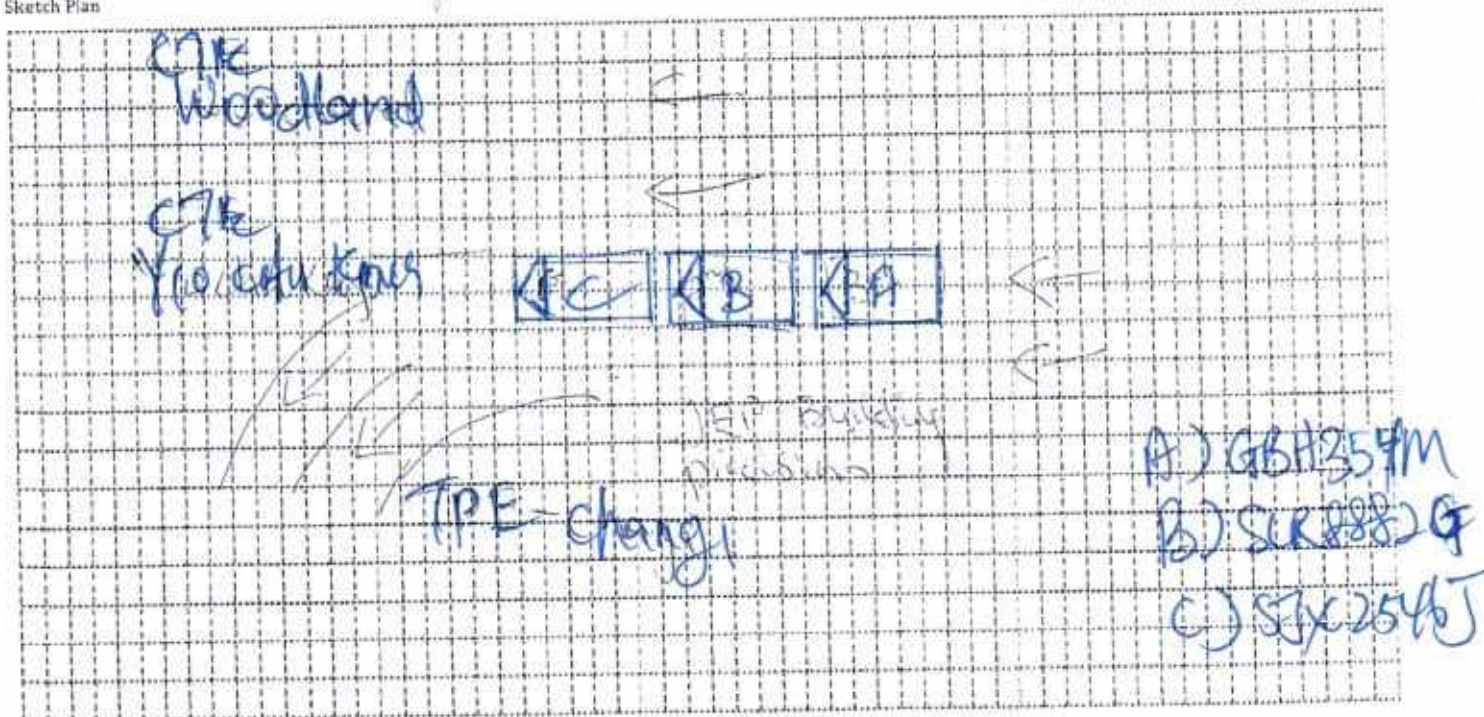 Sketch Plan
CTE
Woodland
CTE
Yio chu Kang
C B A
TPE - Changi
A) GBH3557M
B) SLR8882G
C) SJX2546J